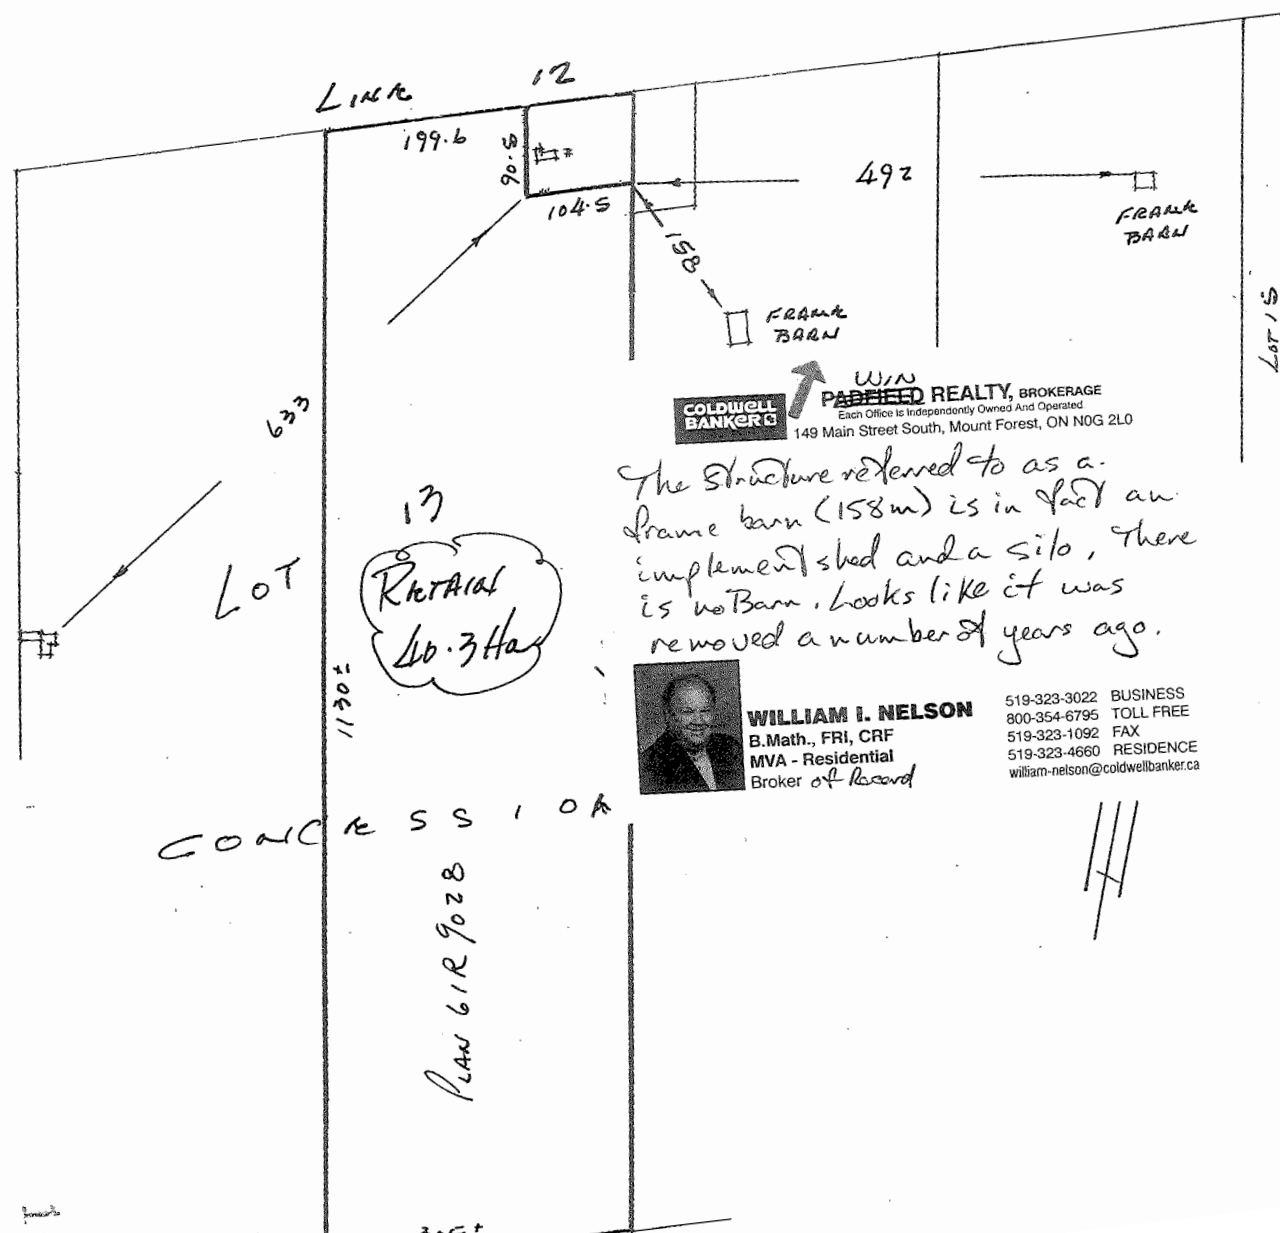 LINE 12
199.6
90.5
104.5
492
FRAME
BARN
158
FRAME
BARN
LOT 15
633
COLDWELL
BANKER
WIN
PADFIELD REALTY, BROKERAGE
Each Office is Independently Owned And Operated
149 Main Street South, Mount Forest, ON N0G 2L0
The structure referred to as a
frame barn (158m) is in fact an
implement shed and a silo. There
is no Barn. Looks like it was
removed a number of years ago.
LOT 13
RETAIN
40.3 Ha
1130±
WILLIAM I. NELSON
B.Math., FRI, CRF
MVA - Residential
Broker of Record
519-323-3022 BUSINESS
800-354-6795 TOLL FREE
519-323-1092 FAX
519-323-4660 RESIDENCE
william-nelson@coldwellbanker.ca
CONCESSION
PLAN 61R 9028